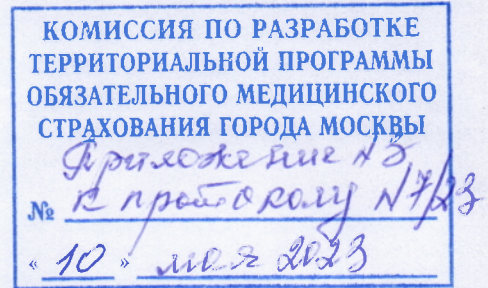 КОМИССИЯ ПО РАЗРАБОТКЕ
ТЕРРИТОРИАЛЬНОЙ ПРОГРАММЫ
ОБЯЗАТЕЛЬНОГО МЕДИЦИНСКОГО
СТРАХОВАНИЯ ГОРОДА МОСКВЫ
Приложение №3
№ к протоколу №7/23
« 10 » мая 2023